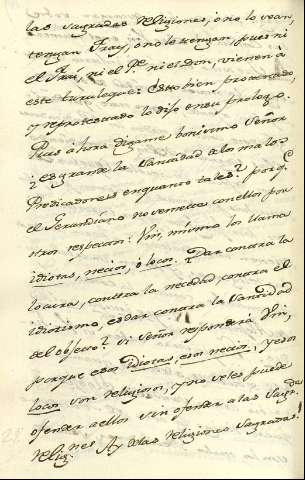 las sagradas religiones, ò no lo sean,
tengan Fray, ò no lo tengan, pues ni
el Fray, ni el Pe. ni el don, vienen à
este turuleque: Esto bien procurado
y reprotextado lo dijo en su prologo.
Pues ahora digame bonisimo Señor
¿es grande la Santidad de los malos
Predicadores en quanto tales? porq.e
el Gerundiano no se mete con ellos por
otros respectos: Vm, mismo los llama
idiotas, necios, ò locos. Dar contra la
locura, contra la necedad, contra el
idiotismo, es dar contra la Santidad
del objecto? Si Señor responderà Vm,
porque esos idiotas, esos necios, y esos
locos son religiosos, y no se les puede
ofender a ellos sin ofender a las Sagr.das
relig.nes Ay de las religiones sagradas!